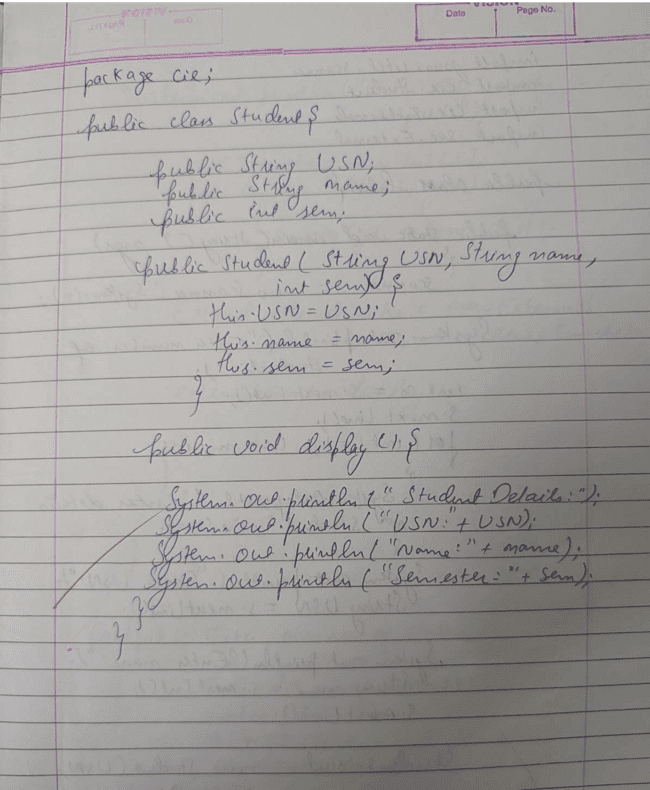 Date
Page No.
package cie;
public class Student {
public String USN;
public String name;
public int sem;
public Student ( String USN, String name,
int sem) {
this.USN = USN;
this.name = name;
this.sem = sem;
}
public void display () {
System.out.println (" Student Details:");
System.out.println ("USN:" + USN);
System.out.println ("Name:" + name);
System.out.println ("Semester:" + sem);
}
}